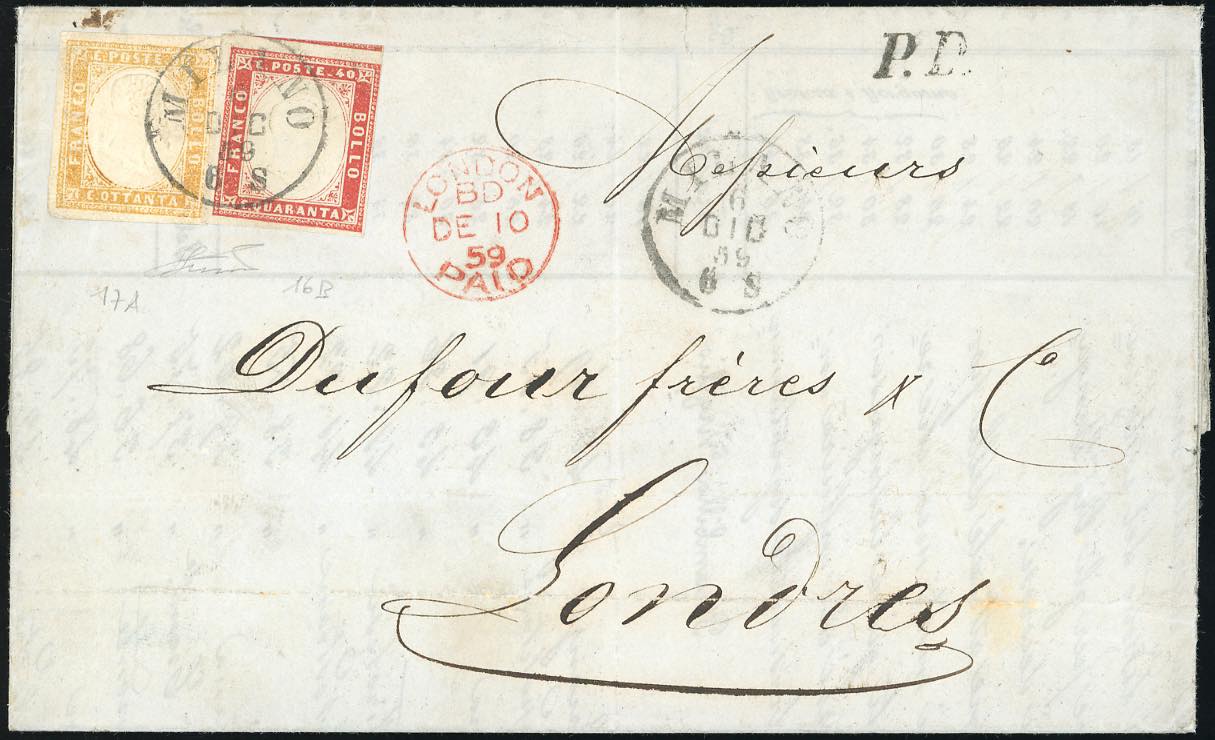 C. POSTE.
FRANCO
BOLLO
C. OTTANTA
C. POSTE. 40
FRANCO
BOLLO
QUARANTA
MILANO
DIC
59
6 S
P.D.
LONDON
BD
DE 10
59
PAID
MILANO
6
DIC
59
6 S
Messieurs
17A
16B
Dufour frères & C
Londres